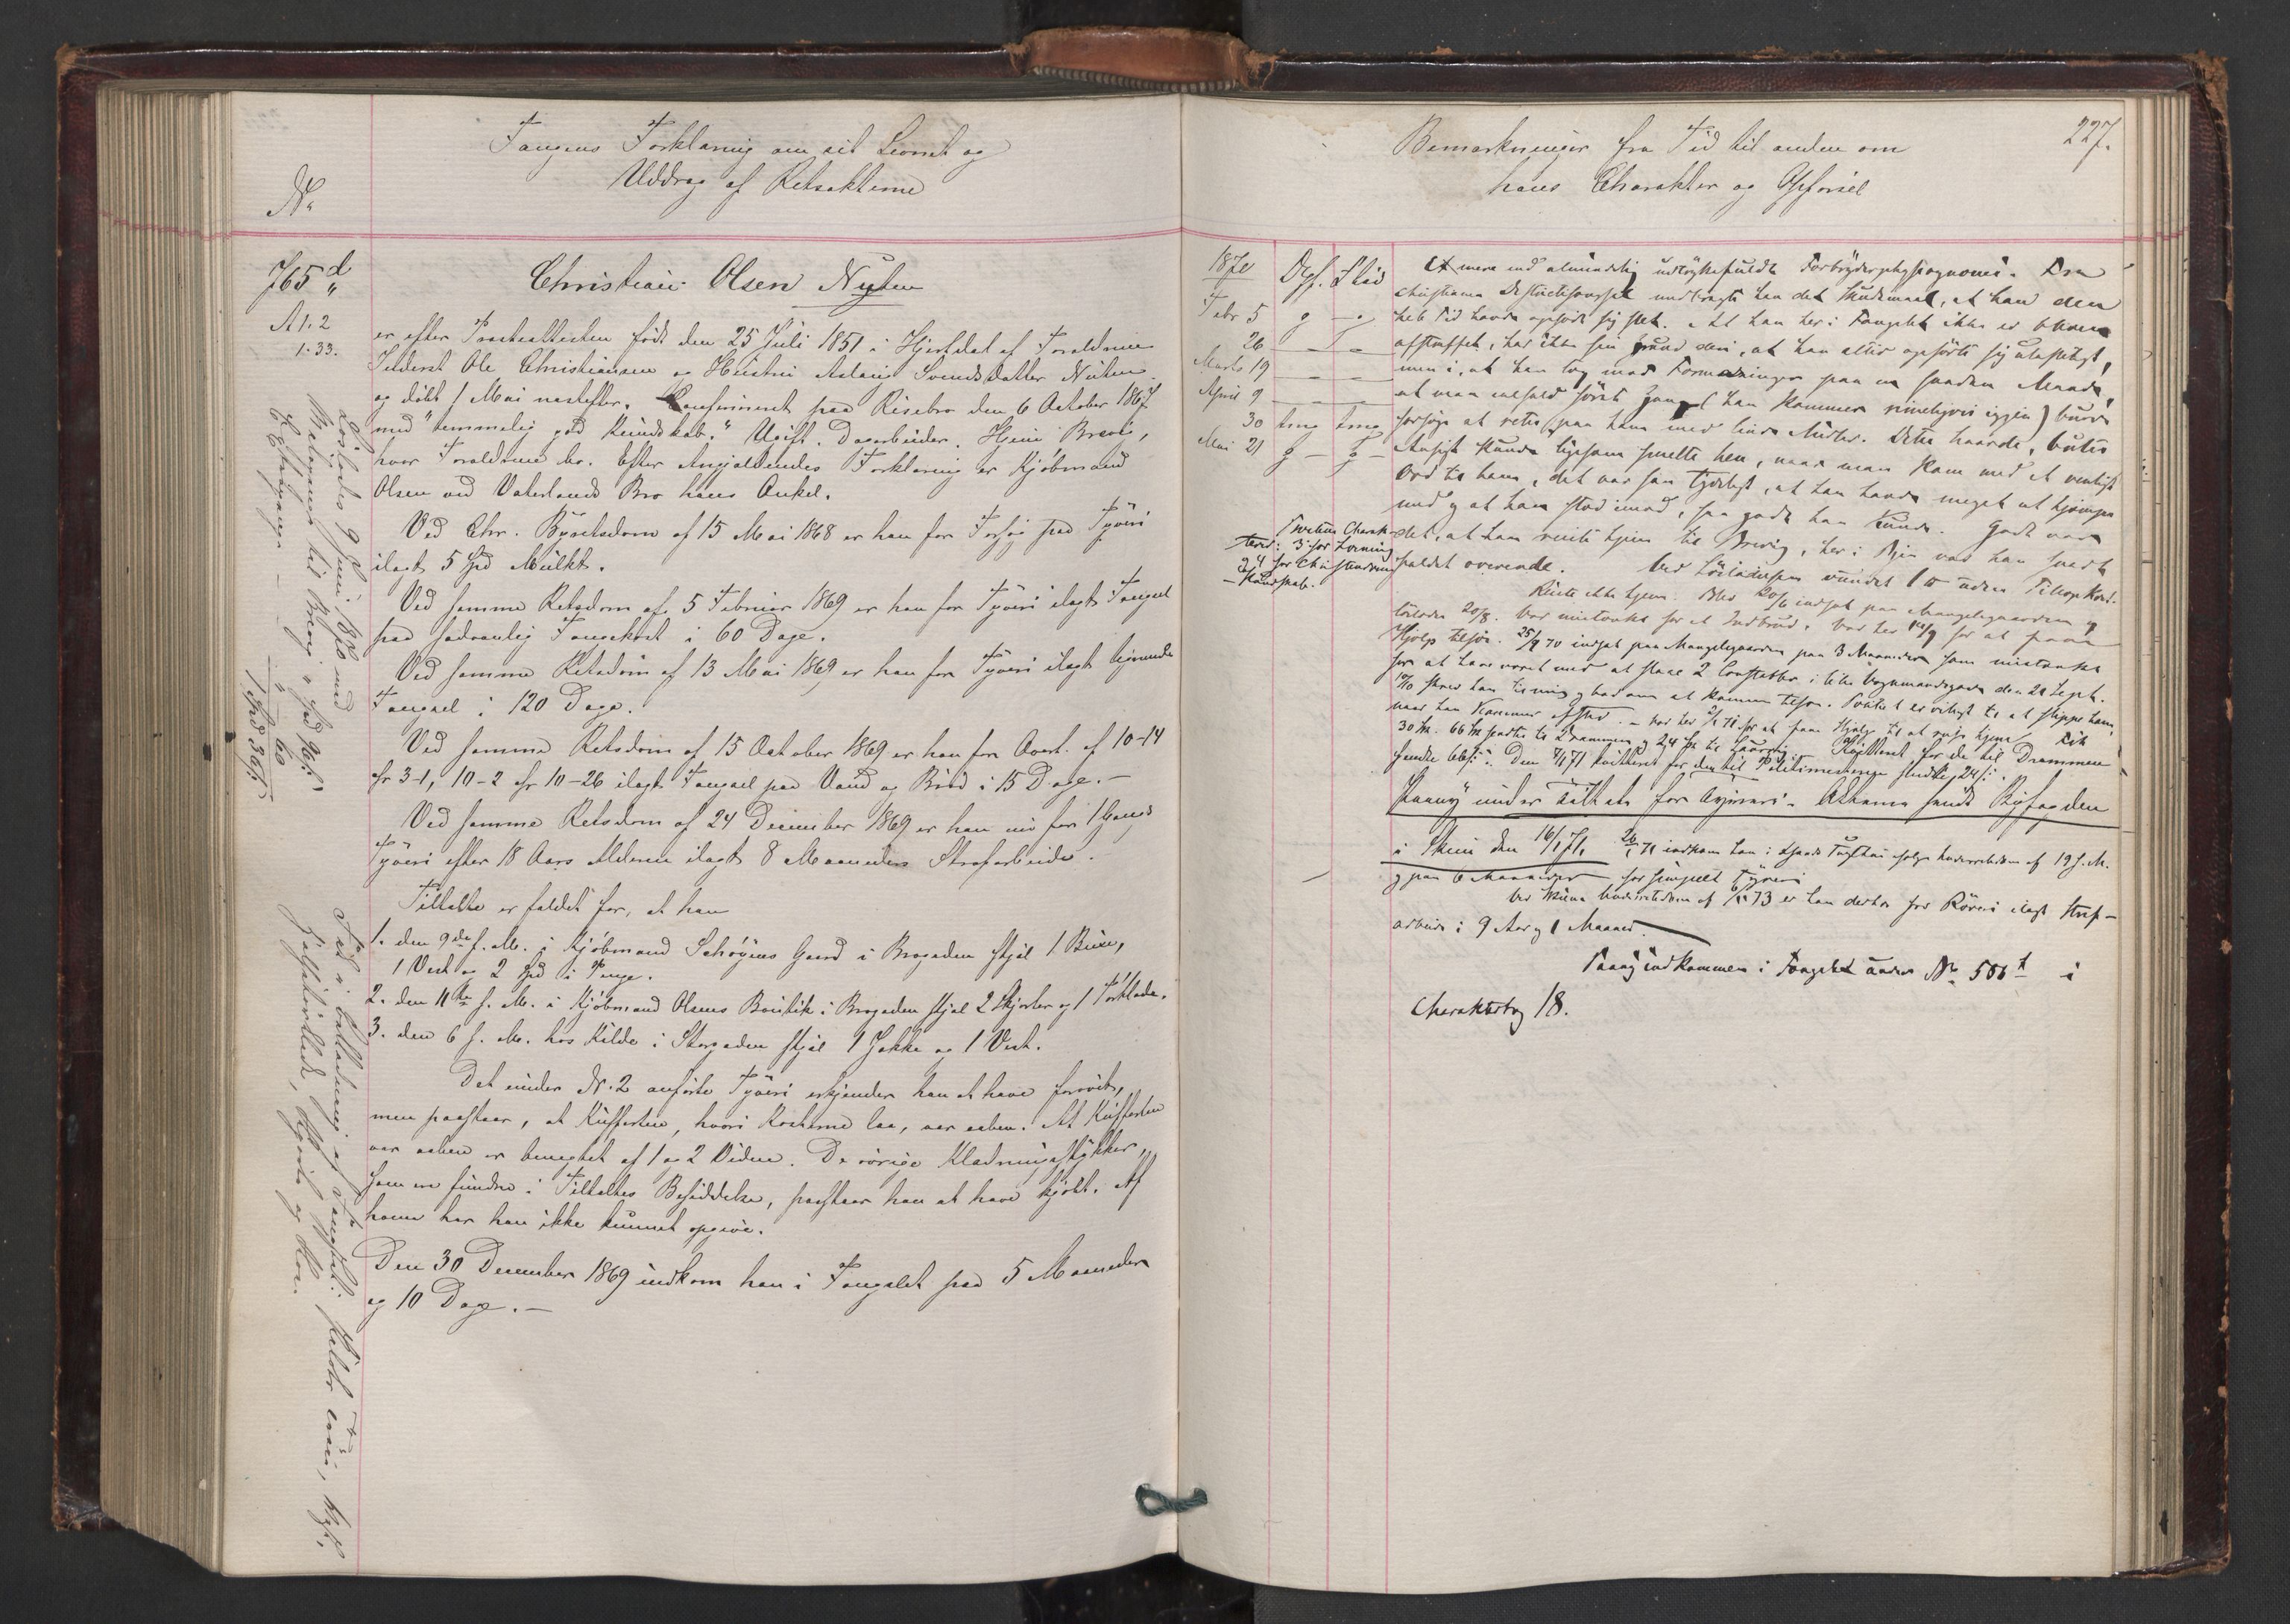 Fangens Forklaring om sit Levnet og
Uddrag af Retsakterne
No
765 d
A 1. 2
1. 33.
Christian Olsen Nuten
er efter Præsteattesten født den 25 Juli 1851 i Hjertdal af Forældrene
Ole Christiansen og Hustru Aslaug Svendsdatter Nuten
og døbt 1 Mai næstefter. Confirmeret paa Risebro den 6 October 1867
med "temmelig god Kundskab." Ugift. Dagarbeider. Hjem Brevig,
hvor Forældrene bo. Efter Angjældendes Forklaring er Kjøbmand
Olsen ved Vaterlands Bro hans Onkel.
Ved Chr. Byretsdom af 15 Mai 1868 er han for Forsøg paa Tyveri
ilagt 5 Spd Mulkt.
Ved samme Retsdom af 5 Februar 1869 er han for Tyveri ilagt Fængsel
paa sædvanlig Fangekost i 60 Dage.
Ved samme Retsdom af 13 Mai 1869 er han for Tyveri ilagt lignende
Fængsel i 120 Dage.
Ved samme Retsdom af 15 October 1869 er han for Overt. af 10-14
cfr 3-1, 10-2 cfr 10-26 ilagt Fængsel paa Vand og Brød i 15 Dage.—
Ved samme Retsdom af 24 December 1869 er han nu for 1 Gangs
Tyveri efter 18 Aars Alderen ilagt 8 Maaneders Strafarbeide.
Tiltalte er fældet for, at han
1. den 9de f. M. i Kjøbmand Schøyens Gaard i Brogaden stjal 1 Buxe,
1 Vest og 2 Spd i Penge.
2. den 11te f. M. i Kjøbmand Olsens Boutik i Brogaden stjal 2 Skjorter og 1 Tørklæde.
3. den 6 f. M. hos Kilde i Storgaden stjal 1 Jakke og 1 Vest.
Det under No. 2 anførte Tyveri erkjender han at have forøvet,
men paastaar, at Kufferten, hvori Kosterne laa, var aaben. At Kufferten
var aaben er benegtet af 1 og 2 Vidne. De øvrige Klædningsstykker,
som ere fundne i Tiltaltes Besiddelse, paastaar han at have kjøbt. Af
hvem har han ikke kunnet opgive.
Den 30 December 1869 indkom han i Fængslet paa 5 Maaneder
og 10 Dage.—
Løslades 9 Juni 1870 med
til Brevig
1 Spd 36 s
Fik i beklædning af Fængslet:
Skjorte og Skoe.
227.
Bemærkninger fra Tid til anden om
hans Charakter og Opførsel
1870
Opf. Flid
Febr 5 g — g
26 — —
Marts 19 — —
April 9 — —
30 tmg tmg
Mai 21 g — g —
Et mere end almindelig udtryksfuldt Forbryderphysiognomi. Fra
Christiania medbragte han det Skudsmaal, at han den
hele Tid havde opført sig slet. At han her i Fængslet ikke er bleven
afstraffet, har ikke sin Grund deri, at han altid opførte sig ulasteligt,
men i, at han tog mod Formaninger paa en saadan Maade,
at man ialfald første Gang (han kommer rimeligvis igjen) burde
forsøge at rette paa ham med linde Midler. Dette haarde, butte
Ansigt kunde ligesom smelte hen, naar man kom med et venligt
Ord til ham, det var saa tydeligt, at han havde meget at kjæmpe
med og at han stod imod, saa godt han kunde. Godt var
det, at han reiste hjem til Brevig, her i Byen vad han snart
faldet overende. Ved Løsladelsen vundet 1 ℔ uden Tillægskost.
3 for Lærning
4 for Christendoms
Kundskab.
Reiste ikke hjem. Blev 20/6 indsat paa Mangelsgaarden og
løsladt 20/8. Var mistænkt for et Indbrud. Var her 14/9 for at faae
Hjælp tilsøs. 25/9 70 indsat paa Mangelsgaarden paa 3 Maaneder som mistænkt
for at have været med at slaae 2 Constabler i Lille Vognmandsgade den 21 Sept.
skrev han til mig og bad om at komme tilsøs. Politiet er villigt til at slippe ham,
naar han kommer afsted. — Var her 2/1 71 for at faae Hjælp til at reise hjem. Fik
til Drammen og 24 s til
sendte 66 s. Den 7/1 71 for den til Politimesteren sendte 24 s.
Paany under Tiltale for Tyveri. Akterne sendt Byfogden
i Skien den 16/1 71. 26/1 71 indkom han i Tugthus ifølge Underretsdom af 19 f. M.
og paa 6 Maaneder for simpelt Tyveri
Ved Skiens Underretsdom af 73 er han derhos for Røveri ilagt Straf-
arbeide i 9 Aar og 1 Maaned.
Paany indkommen i Fængslet under No. 506 t i
Charakterbog 18.